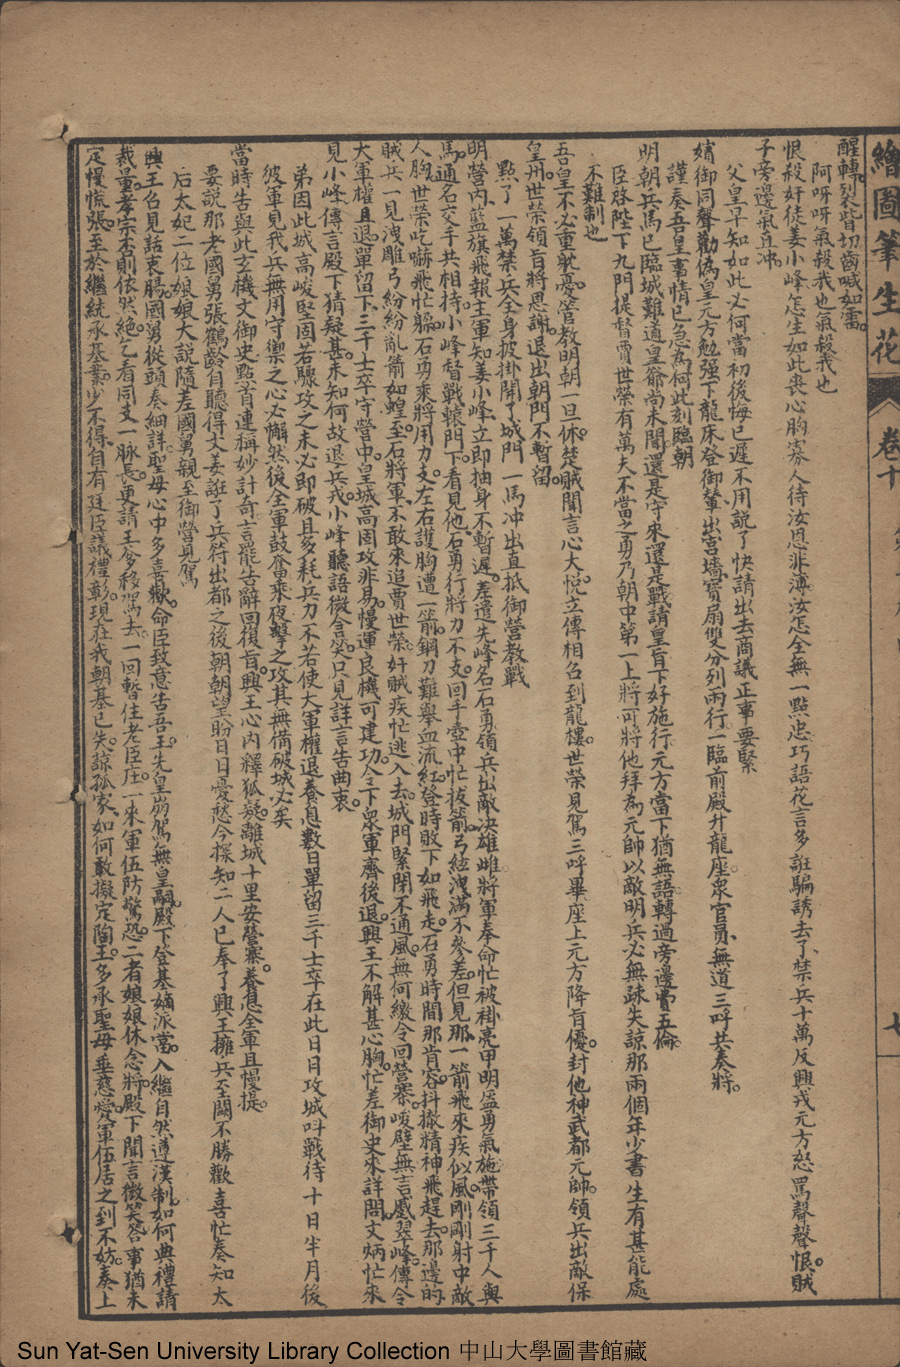 繪圖筆生花 卷十
七
醒轉裂眥切齒喊如雷
阿呀呀氣殺我也氣殺我也
恨殺奸徒姜小峰怎生如此喪心胸寡人待汝恩非薄汝怎全無一點忠巧語花言多誑騙誘去了禁兵十萬反興戎元方怒罵聲聲恨賊
子旁邊氣直冲
父皇早知如此必何當初後悔已遲不用說了快請出去商議正事要緊
嬪御同聲勸偽皇元方勉强下龍床登御輦出宮墻寶扇雙分列兩行一臨前殿升龍座衆官員無道三呼共奏將
謹奏吾皇事情已急為何此刻臨朝
明朝兵馬已臨城難道皇爺尚未聞還是守來還是戰請皇旨下好施行元方當下猶無語轉過旁邊賈五倫
臣啓陛下九門提督賈世榮有萬夫不當之勇乃朝中第一上將可將他拜為元帥以敵明兵必無疎失諒那兩個年少書生有甚能處
不難制也
吾皇不必重躭憂管教明朝一旦休楚賊聞言心大悅立傳相召到龍樓世榮見駕三呼畢座上元方降旨優封他神武都元帥領兵出敵保
皇州世榮領旨將恩謝退出朝門不暫留
點了一萬禁兵全身披掛開了城門一馬冲出直抵御營教戰
明營內藍旗飛報主軍知姜小峰立即抽身不暫遲差遣先峰名石勇領兵出敵决雄雌將軍奉命忙被掛亮甲明盔勇氣施帶領三千人與
馬通名交手共相持小峰督戰轅門下看見他石勇行將力不支回手壺中忙拔箭弓絃洩滿不參差但見那一箭飛來疾似風剛剛射中敵
人胸世榮吃嚇飛忙躲石勇乘將用力支左右護胸遭一箭鋼刀難舉血流紅登時敗下如飛走石勇時間那肯容抖擻精神飛趕去那邊的
賊兵一見洩雕弓紛紛亂箭如蝗至石將軍不敢來追賈世榮奸賊疾忙逃入去城門緊閉不通風無何繳令回營寨嘆壁無言戲翠峰傳令
大軍權且退軍留下三千士卒守營中皇城高固攻非易慢運良機可建功令下衆軍齊後退興王不解甚心胸忙差御史來詳問文炳忙來
見小峰傳言殿下猜疑甚未知何故退兵戎小峰聽語微含笑只見詳言告曲衷
弟因此城高峻堅固若驟攻之未必即破且多耗兵力不若使大軍權退養息數日單留三千士卒在此日日攻城叫戰待十日半月後
彼軍見我兵無用守禦之心必懈然後全軍鼓奮乘夜擊之攻其無備破城必矣
當時告與此玄機文御史點首連稱妙計奇言罷告辭回復旨興王心內釋狐疑離城十里安營寨養息全軍且慢提
要說那老國舅張鶴齡自聽得丈姜誑了兵符出都之後朝朝望盼日日憂愁今探知二人已奉了興王擁兵至闕不勝歡喜忙奏知太
后太妃二位娘娘大說隨差國舅親至御營見駕
興王召見話衷腸國舅從頭奏細詳聖母心中多喜歡命臣致意告吾王先皇崩駕無皇嗣殿下登基嫡派當入繼自然遵漢制如何典禮請
裁量孝宗否則依然絶乞看同支一脉長更請王爹移駕去一回暫住老臣庄一來軍伍防驚恐二者娘娘休念將殿下聞言微笑答事猶未
定慢慌張至於繼統承基業少不得自有廷臣議禮彰現在我朝基已失諒孤家如何敢擬定陶王多承聖母垂慈愛軍伍居之到不妨奏上
Sun Yat-Sen University Library Collection 中山大學圖書館藏